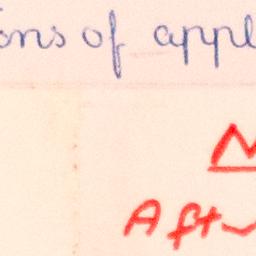 ons of appl
N
Aft